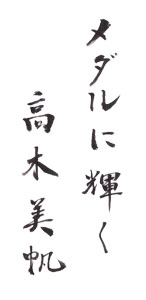 メダルに輝く
高木美帆